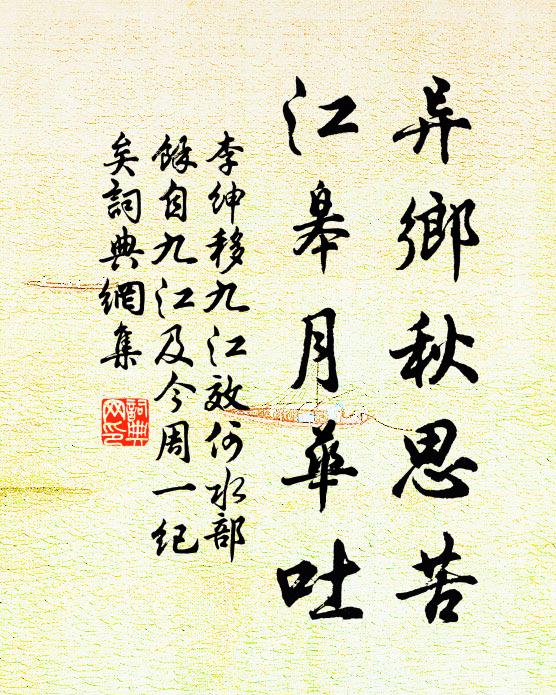 异鄉秋思苦
江皋月華吐
李紳移九江效何水部
餘自九江及今周一紀
矣詞典網集
詞典
网印